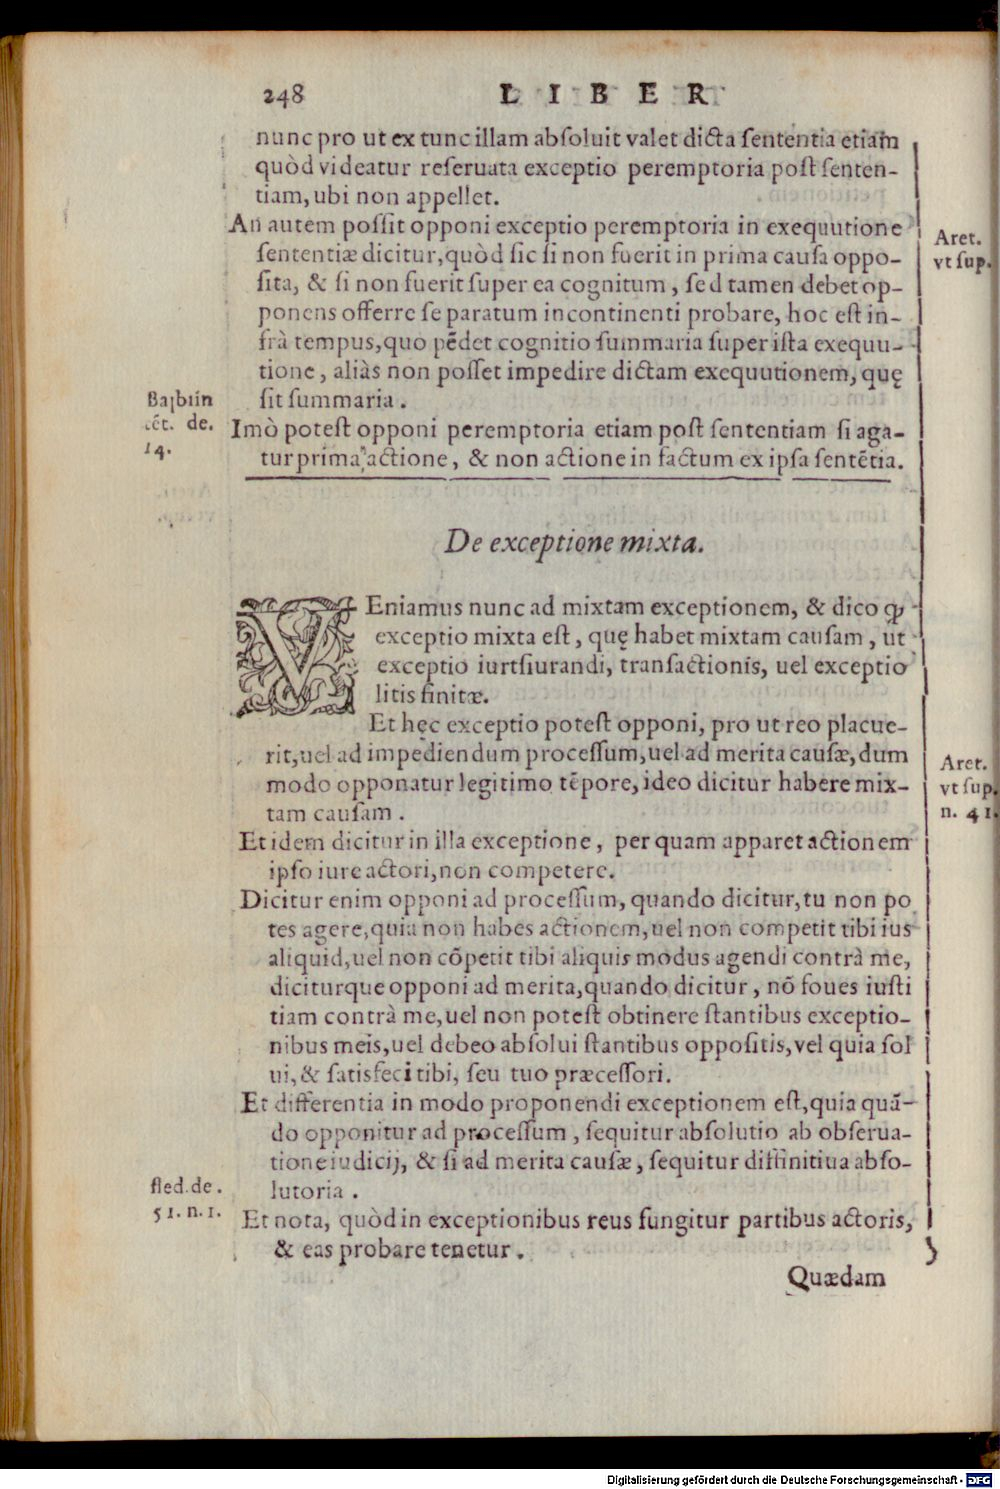 248 LIBER
nunc pro ut ex tunc illam absoluit valet dicta sententia etiam
quòd videatur reseruata exceptio peremptoria post senten-
tiam, ubi non appellet.
An autem possit opponi exceptio peremptoria in exequutione
sententiæ dicitur, quòd sic si non fuerit in prima causa oppo-
sita, & si non fuerit super ea cognitum, sed tamen debet op-
ponens offerre se paratum incontinenti probare, hoc est in-
frà tempus, quo pẽdet cognitio summaria super ista exequu-
tione, aliàs non posset impedire dictam exequutionem, quę
sit summaria.
Imò potest opponi peremptoria etiam post sententiam si aga-
tur prima actione, & non actione in factum ex ipsa sentẽtia.
Aret.
vt sup.
de.
14.
De exceptione mixta.
VEniamus nunc ad mixtam exceptionem, & dico ꝙ
exceptio mixta est, quę habet mixtam causam, ut
exceptio iurtsiurandi, transactionis, uel exceptio
litis finitæ.
Et hęc exceptio potest opponi, pro ut reo placue-
rit, uel ad impediendum processum, uel ad merita causæ, dum
modo opponatur legitimo tẽpore, ideo dicitur habere mix-
tam causam.
Et idem dicitur in illa exceptione, per quam apparet actionem
ipso iure actori, non competere.
Dicitur enim opponi ad processum, quando dicitur, tu non po
tes agere, quia non habes actionem, uel non competit tibi ius
aliquid, uel non cõpetit tibi aliquis modus agendi contrà me,
diciturque opponi ad merita, quando dicitur, nõ foues iusti
tiam contrà me, uel non potest obtinere stantibus exceptio-
nibus meis, uel debeo absolui stantibus oppositis, vel quia sol
ui, & satisfeci tibi, seu tuo præcessori.
Et differentia in modo proponendi exceptionem est, quia quã-
do opponitur ad processum, sequitur absolutio ab obserua-
tione iudicij, & si ad merita causæ, sequitur diffinitiua abso-
lutoria.
Et nota, quòd in exceptionibus reus fungitur partibus actoris,
& eas probare tenetur.
Aret.
vt sup.
n. 41.
sled. de.
51. n. 1.
Quædam
Digitalisierung gefördert durch die Deutsche Forschungsgemeinschaft - DFG